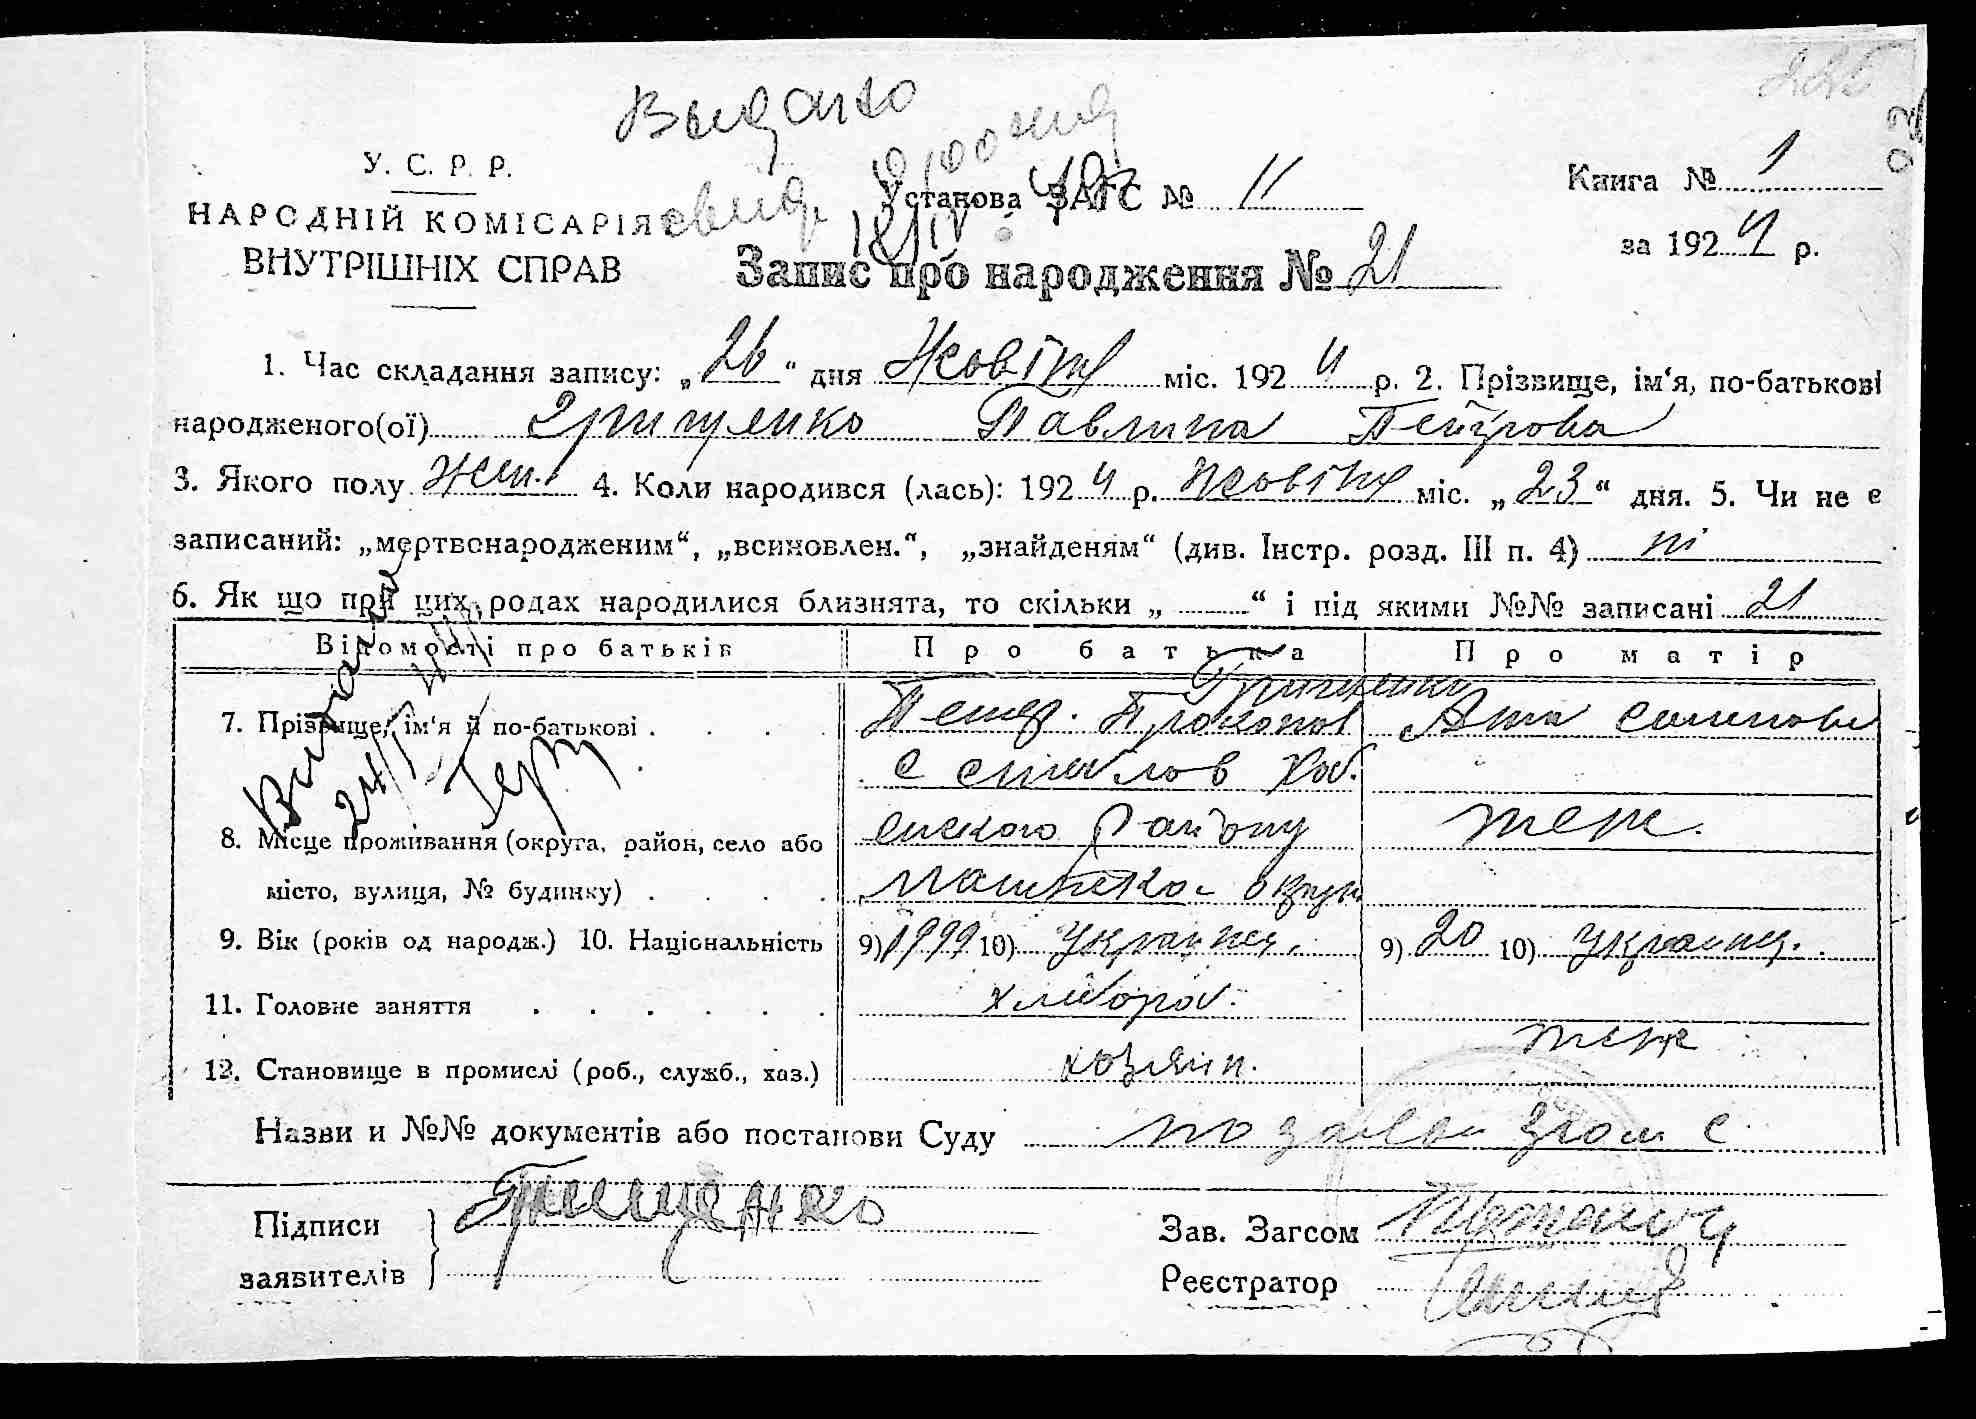 Выдано
У. С. Р. Р.
НАРОДНІЙ КОМІСАРІЯ
ВНУТРІШНІХ СПРАВ
свид.
Установа ЗАГС № 11
Книга № 1
за 1924 р.
Запис про народження № 21
1. Час складання запису: „26“ дня Жовтня міс. 1924 р. 2. Прізвище, ім‘я, по-батькові
народженого(ої) Грищенко Павлина Петрова
3. Якого полу жен. 4. Коли народився (лась): 1924 р. Жовтня міс. „23“ дня. 5. Чи не є
записаний: „мертвонародженим“, „всиновлен.“, „знайденям“ (див. Інстр. розд. III п. 4) ні
6. Як що при цих родах народилися близнята, то скільки „ “ і під якими №№ записані 21
Відомості про батьків Про батька Про матір
Грищенки
7. Прізвище, ім‘я й по-батькові . . . . Петр. Прокопов
8. Місце проживання (округа, район, село або енского району теж.
місто, вулиця, № будинку) . . . .
9. Вік (років од народж.) 10. Національність 9) 10) Украинец. 9) 20 10) украинц.
11. Головне заняття . . . . . . хлібороб.
теж
12. Становище в промислі (роб., служб., хаз.) хозяин.
Назви и №№ документів або постанови Суду
Підписи Грищенко
заявителів
Зав. Загсом
Реєстратор